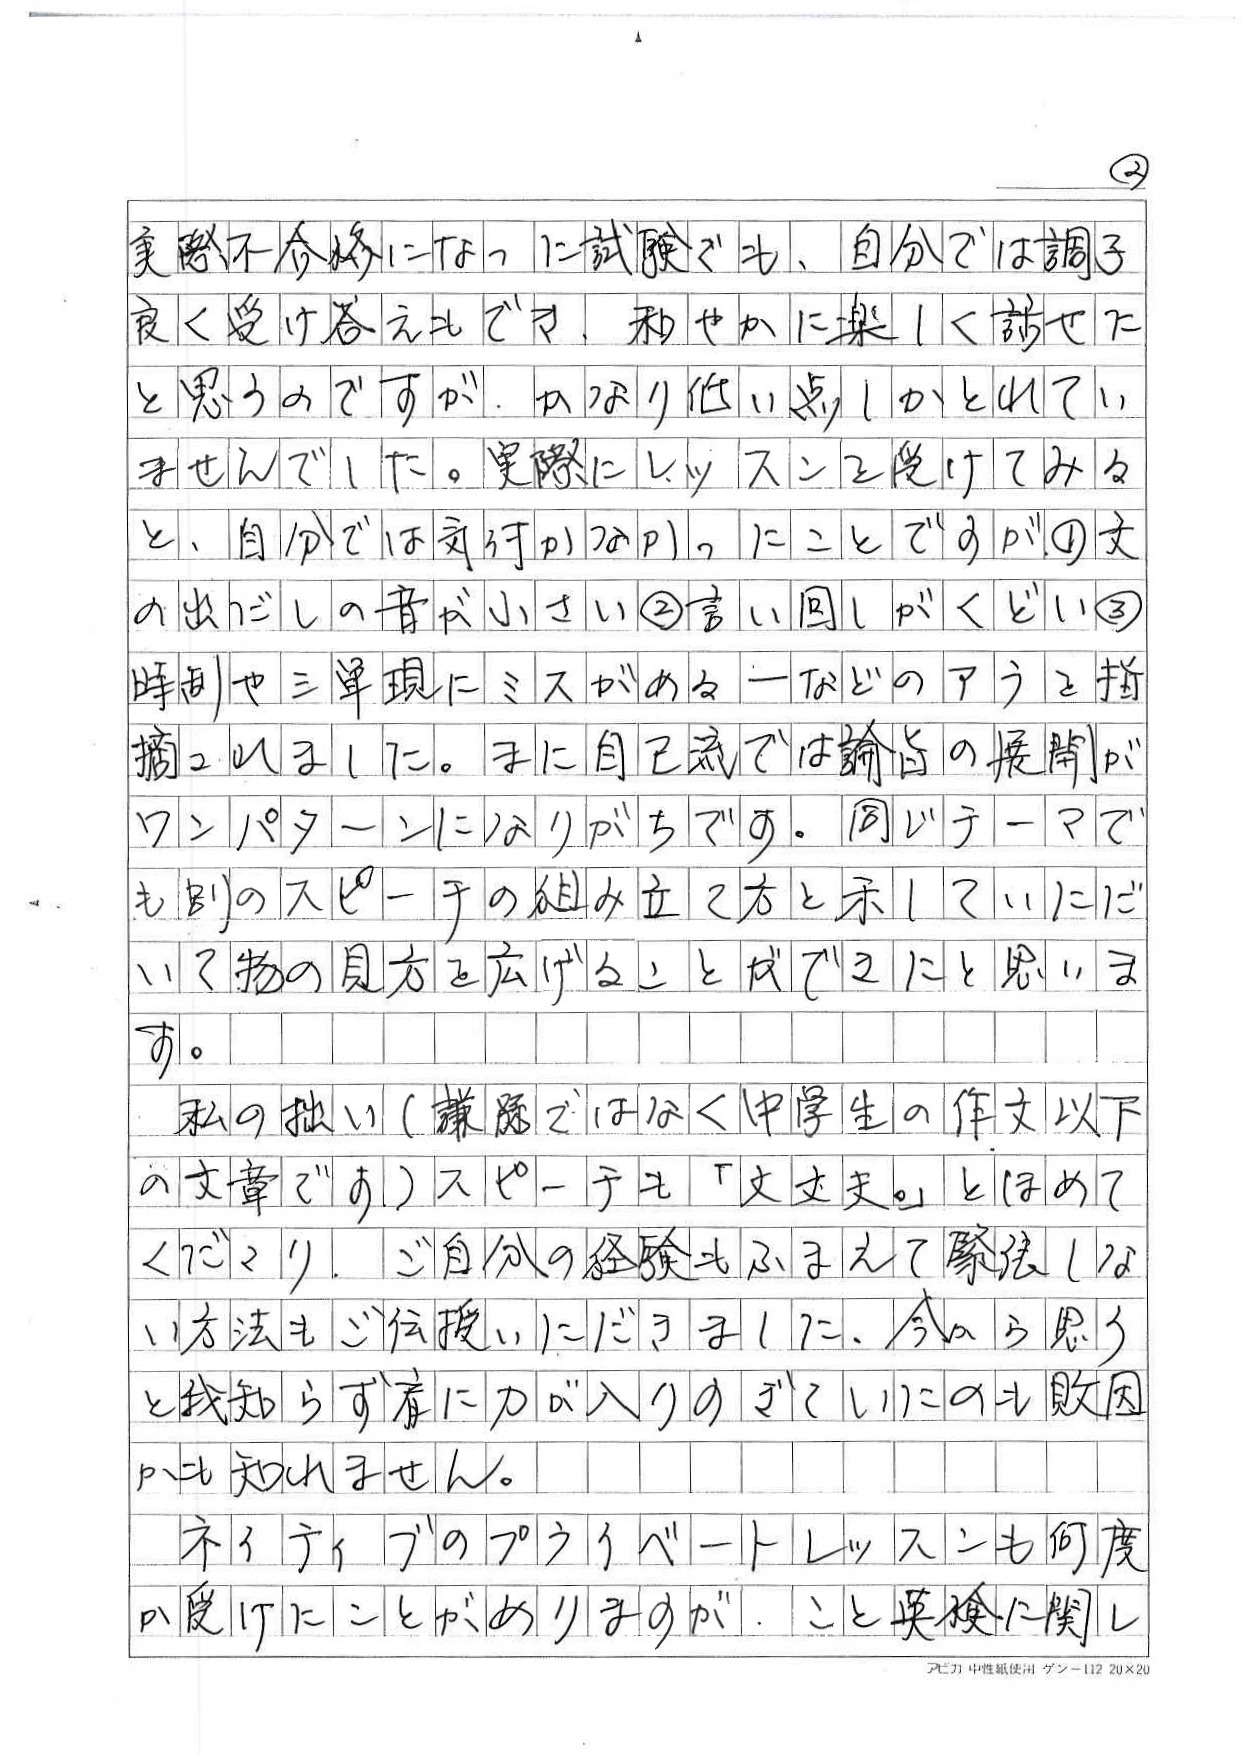 ②
実際不合格になった試験でも、自分では調子
良く受け答えもでき、和やかに楽しく話せた
と思うのですが、かなり低い点しかとれてい
ませんでした。実際にレッスンを受けてみる
と、自分では気付かなかったことですが①文
の出だしの音が小さい②言い回しがくどい③
時制や三単現にミスがある―などのアラを指
摘されました。また自己流では論旨の展開が
ワンパターンになりがちです。同じテーマで
も別のスピーチの組み立て方を示していただ
いて物の見方を広げることができたと思いま
す。
私の拙い(謙遜ではなく中学生の作文以下
の文章です)スピーチも「大丈夫。」とほめて
くださり、ご自分の経験もふまえて緊張しな
い方法もご伝授いただきました。今から思う
と我知らず肩に力が入りすぎていたのも敗因
かも知れません。
ネイティブのプライベートレッスンも何度
か受けたことがありますが、こと英検に関し
アピカ 中性紙使用 ゲン-112 20×20